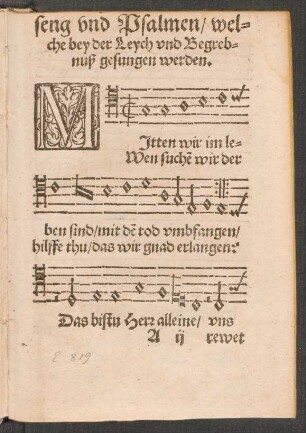 seng vnd Psalmen/ wel-
che bey der Leych vnd Begreb-
nuß gesungen werden.
MItten wir im le-
Wen suchē wir der
ben sind/mit dē tod vmbfangen/
hilffe thu/das wir gnad erlangen:
Das bistu Herr alleine/ vns
A ij rewet
E 819